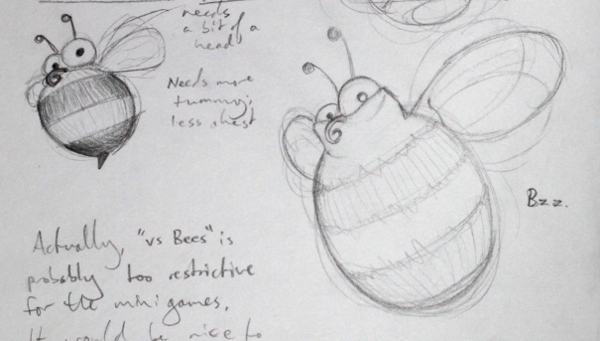 needs
a bit of a
head
Needs more
tummy;
less chest
Bzz.
Actually, "vs Bees" is
probably too restrictive
for the minigames.
It would be nice to